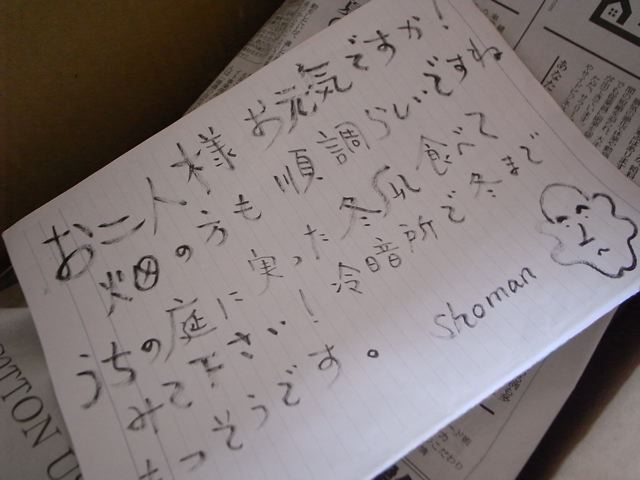 お二人様 お元気ですか!
畑の方も 順調らしいですね
うちの庭に 実った冬瓜 食べて
みて下さい! 冷暗所で冬まで
もつそうです。 shoman